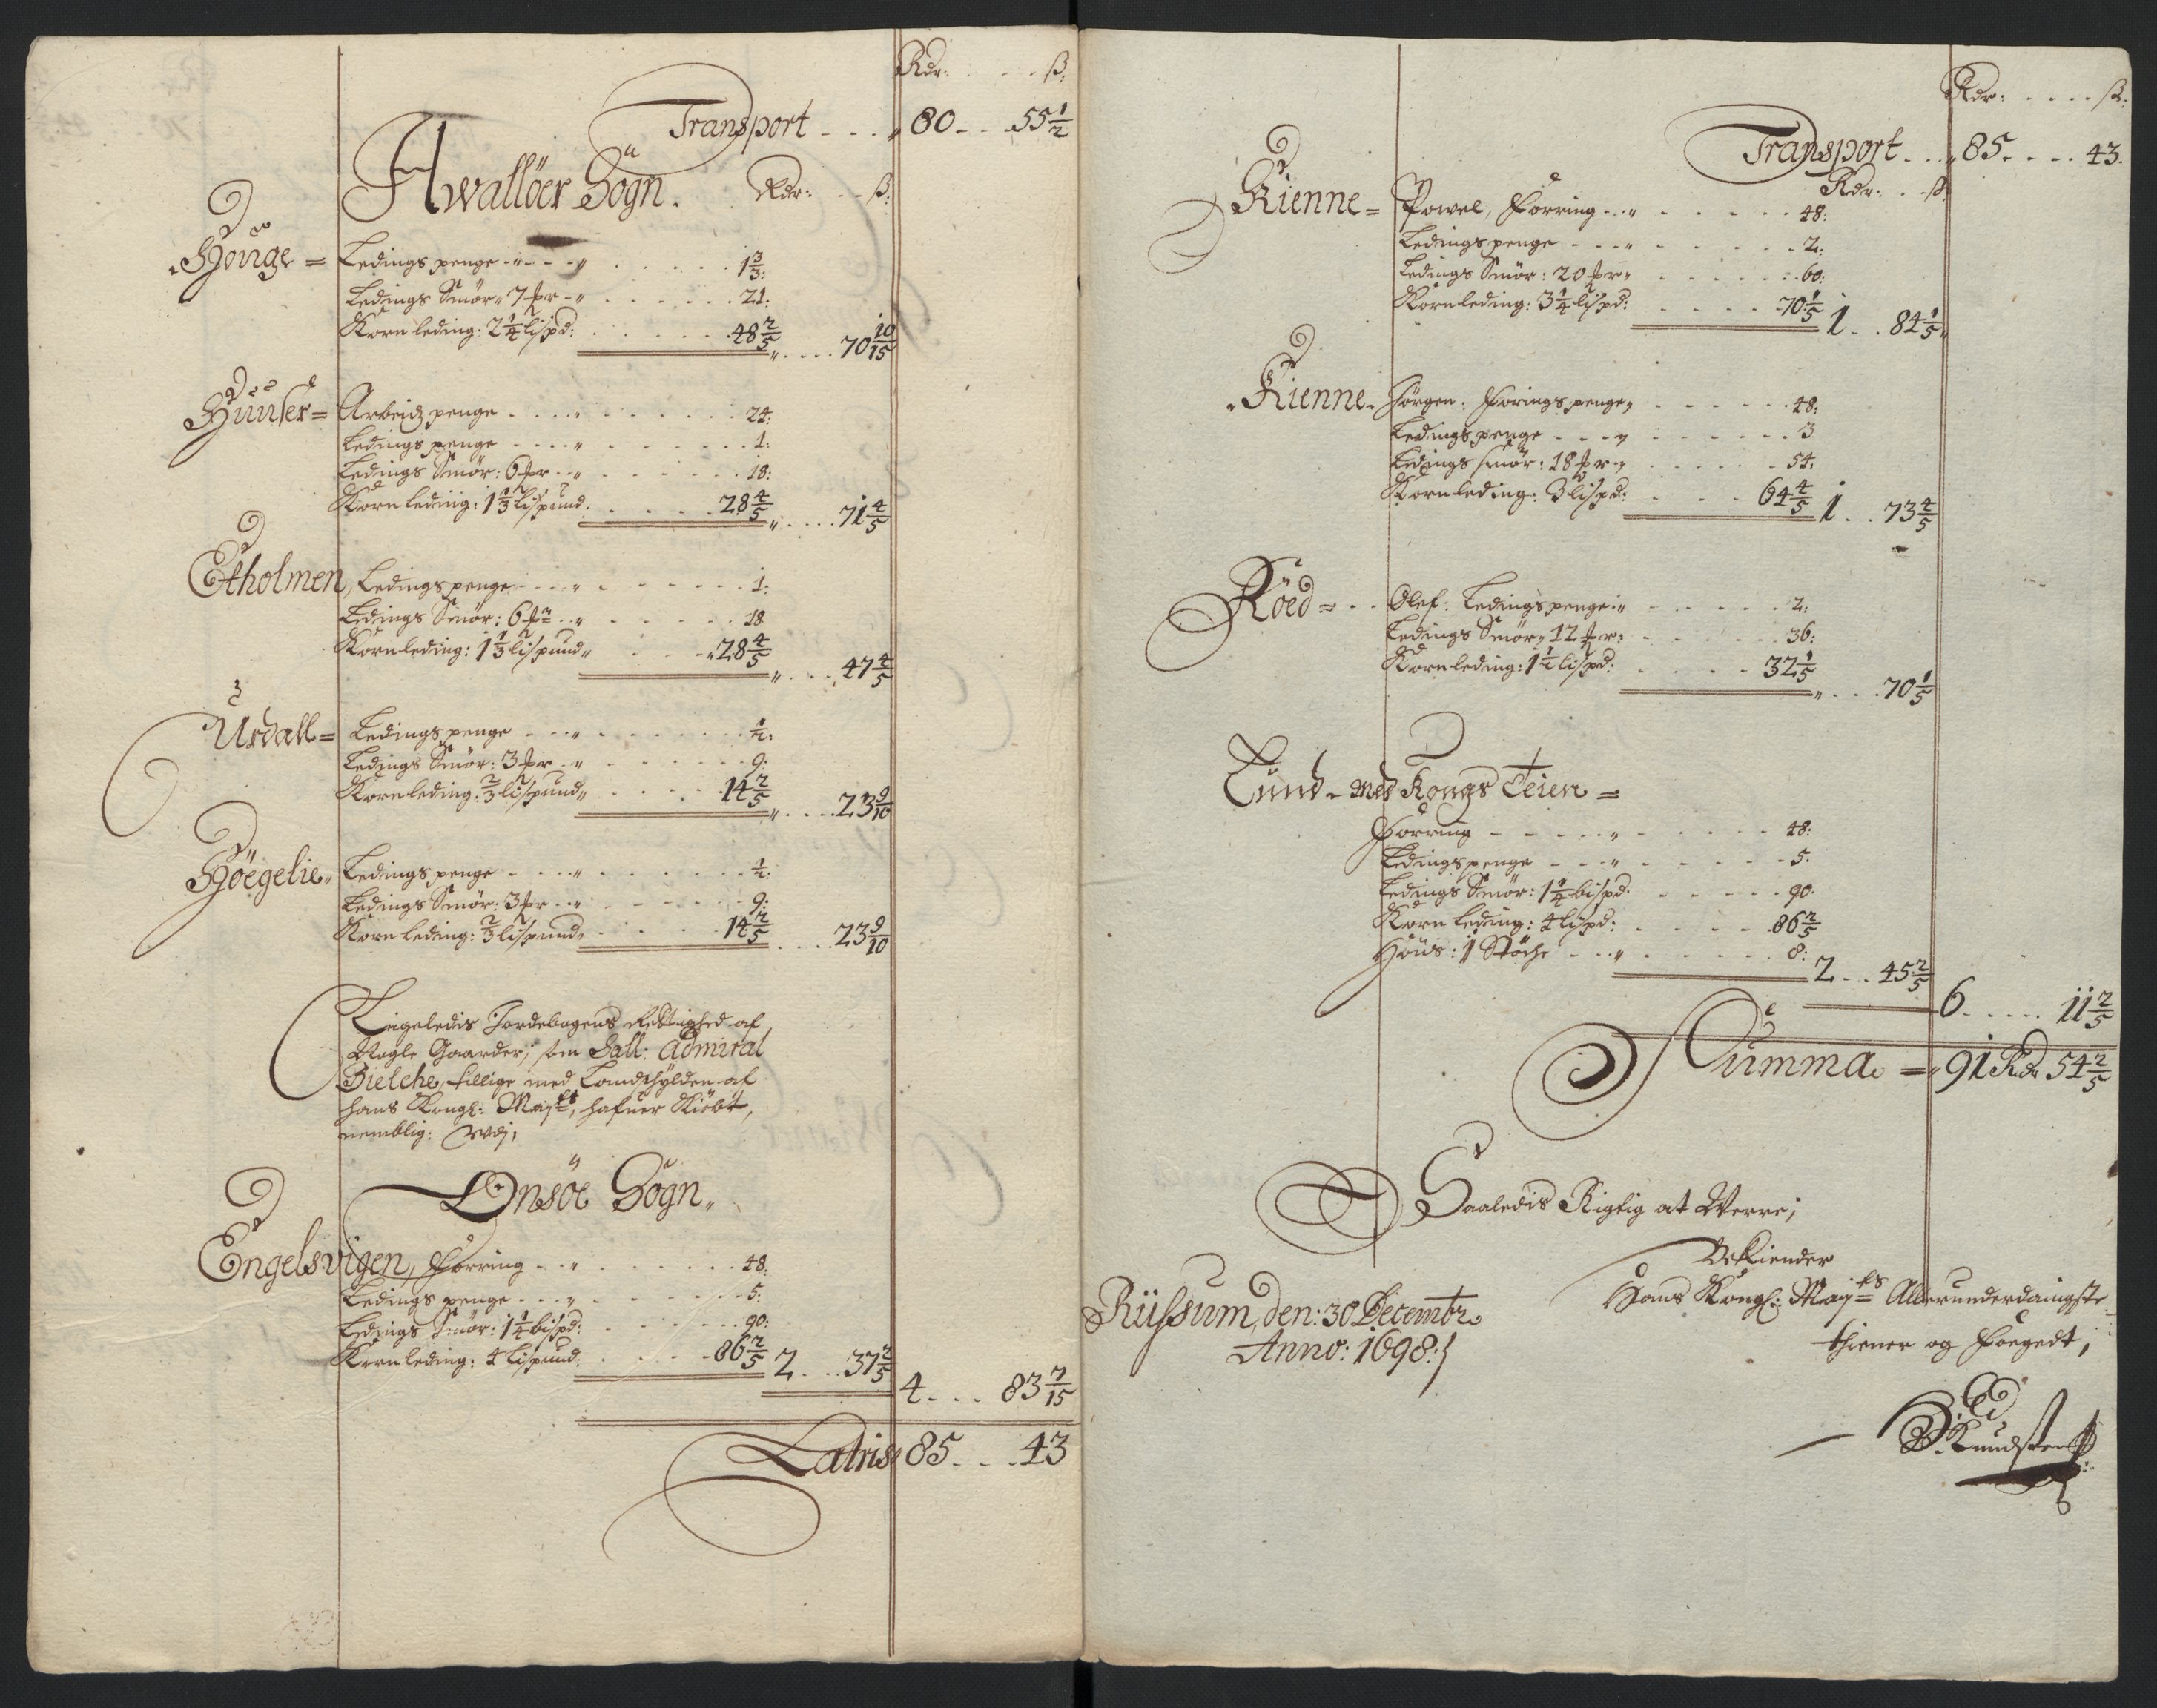 Rdr: . . . ß:
Transport . . . „ 80 . . 55 1/2
Hwallöer Sogn. Rdr: . . ß:
Hjouge = Ledings penge . . . „ . . . 1 3/3:
Ledings Smör „ 7 pr „ . . . 21:
Korn leding: 2 1/4 lispd: . . . 48 2/5
„ . . . 70 10/15
Huuser = Arbeids penge . . . „ . . . 24:
Ledings penge . . . „ . . . 1:
Ledings Smör: 6 pr . . „ . . . 18:
Korn leding: 1 1/3 lispund. . . . 28 4/5
„ . . . 71 4/5
Etholmen, Ledings penge . . . „ . . . 1:
Ledings Smör: 6 pr . . „ . . . 18
Korn leding: 1 1/3 lispund „ . . . 28 4/5
„ . . . 47 4/5
Urdall = Ledings penge . . . „ . . . 1/2:
Ledings Smör: 3 pr . . „ . . . 9:
Korn leding: 2/3 lispund „ . . . 14 2/5
„ . . . 23 9/10
Höegelie „ Ledings penge . . . „ . . . 1/2:
Ledings Smör: 3 pr . . „ . . . 9:
Korn leding: 2/3 lispund „ . . . 14 2/5
. . . 23 9/10
Ligeledis Jordebogens Rettighed af
Nogle Gaarder, som Sall: Admiral
Bielche, tillige med Landschylden af
hans Kongl: Mayts, hafuer Kiöbt,
nemblig:
Onsöe Sogn „
Engelsvigen, Forring . . „ . . . 48:
Ledings penge . . . „ . . . 5:
Ledings Smör: 1 1/4 bispd: . . . 90:
Korn leding: 4 lispund: . . . 86 2/5
2 . . . 37 2/5
4 . . . 83 7/15
Latris 85 . . . 43
Rdr: . . . ß:
Transport . . . „ 85 . . . 43.
Rdr: . . ß
Kienne = Powel, Forring . . „ . . . 48:
Ledings penge . . . „ . . . 2:
Ledings Smör: 20 pr „ . . . 60:
Korn leding: 3 1/4 lispd: . . . 70 1/5
1 . . 84 1/5 „
Kienne. Jörgen: Forings penge „ . . . 48:
Ledings penge . . . „ . . . 3
Ledings smör: 18 pr „ . . . 54:
Korn leding: 3 lispd: . . . 64 4/5
1 . . 73 4/5
Röed = . . Olef: Ledings penge: „ . . . 2:
Ledings Smör „ 12 pr: . . . 36:
Korn leding: 1 1/2 lispd: . . . 32 1/5
„ . . . 70 1/5
Lund med Kongs Teien =
Forring . . . „ . . . 48:
Ledings penge . . . „ . . . 5.
Ledings Smör: 1 1/4 bispd. . . . 90.
Korn leding: 4 lispd: . . . 86 2/5
Huus: 1 Støche . . . „ . . . 8:
2 . . . 45 2/5
6 . . . 11 2/5
Summa = „ 91 Rdr 54 2/5
Saaledis Rigtig at Werre,
Bekiender
Hans Kongl: Mayts Allerunderdanigste
thiener og Foegedt,
Rüssum, den: 30 Decembr.
Anno: 1698:
Knudsen